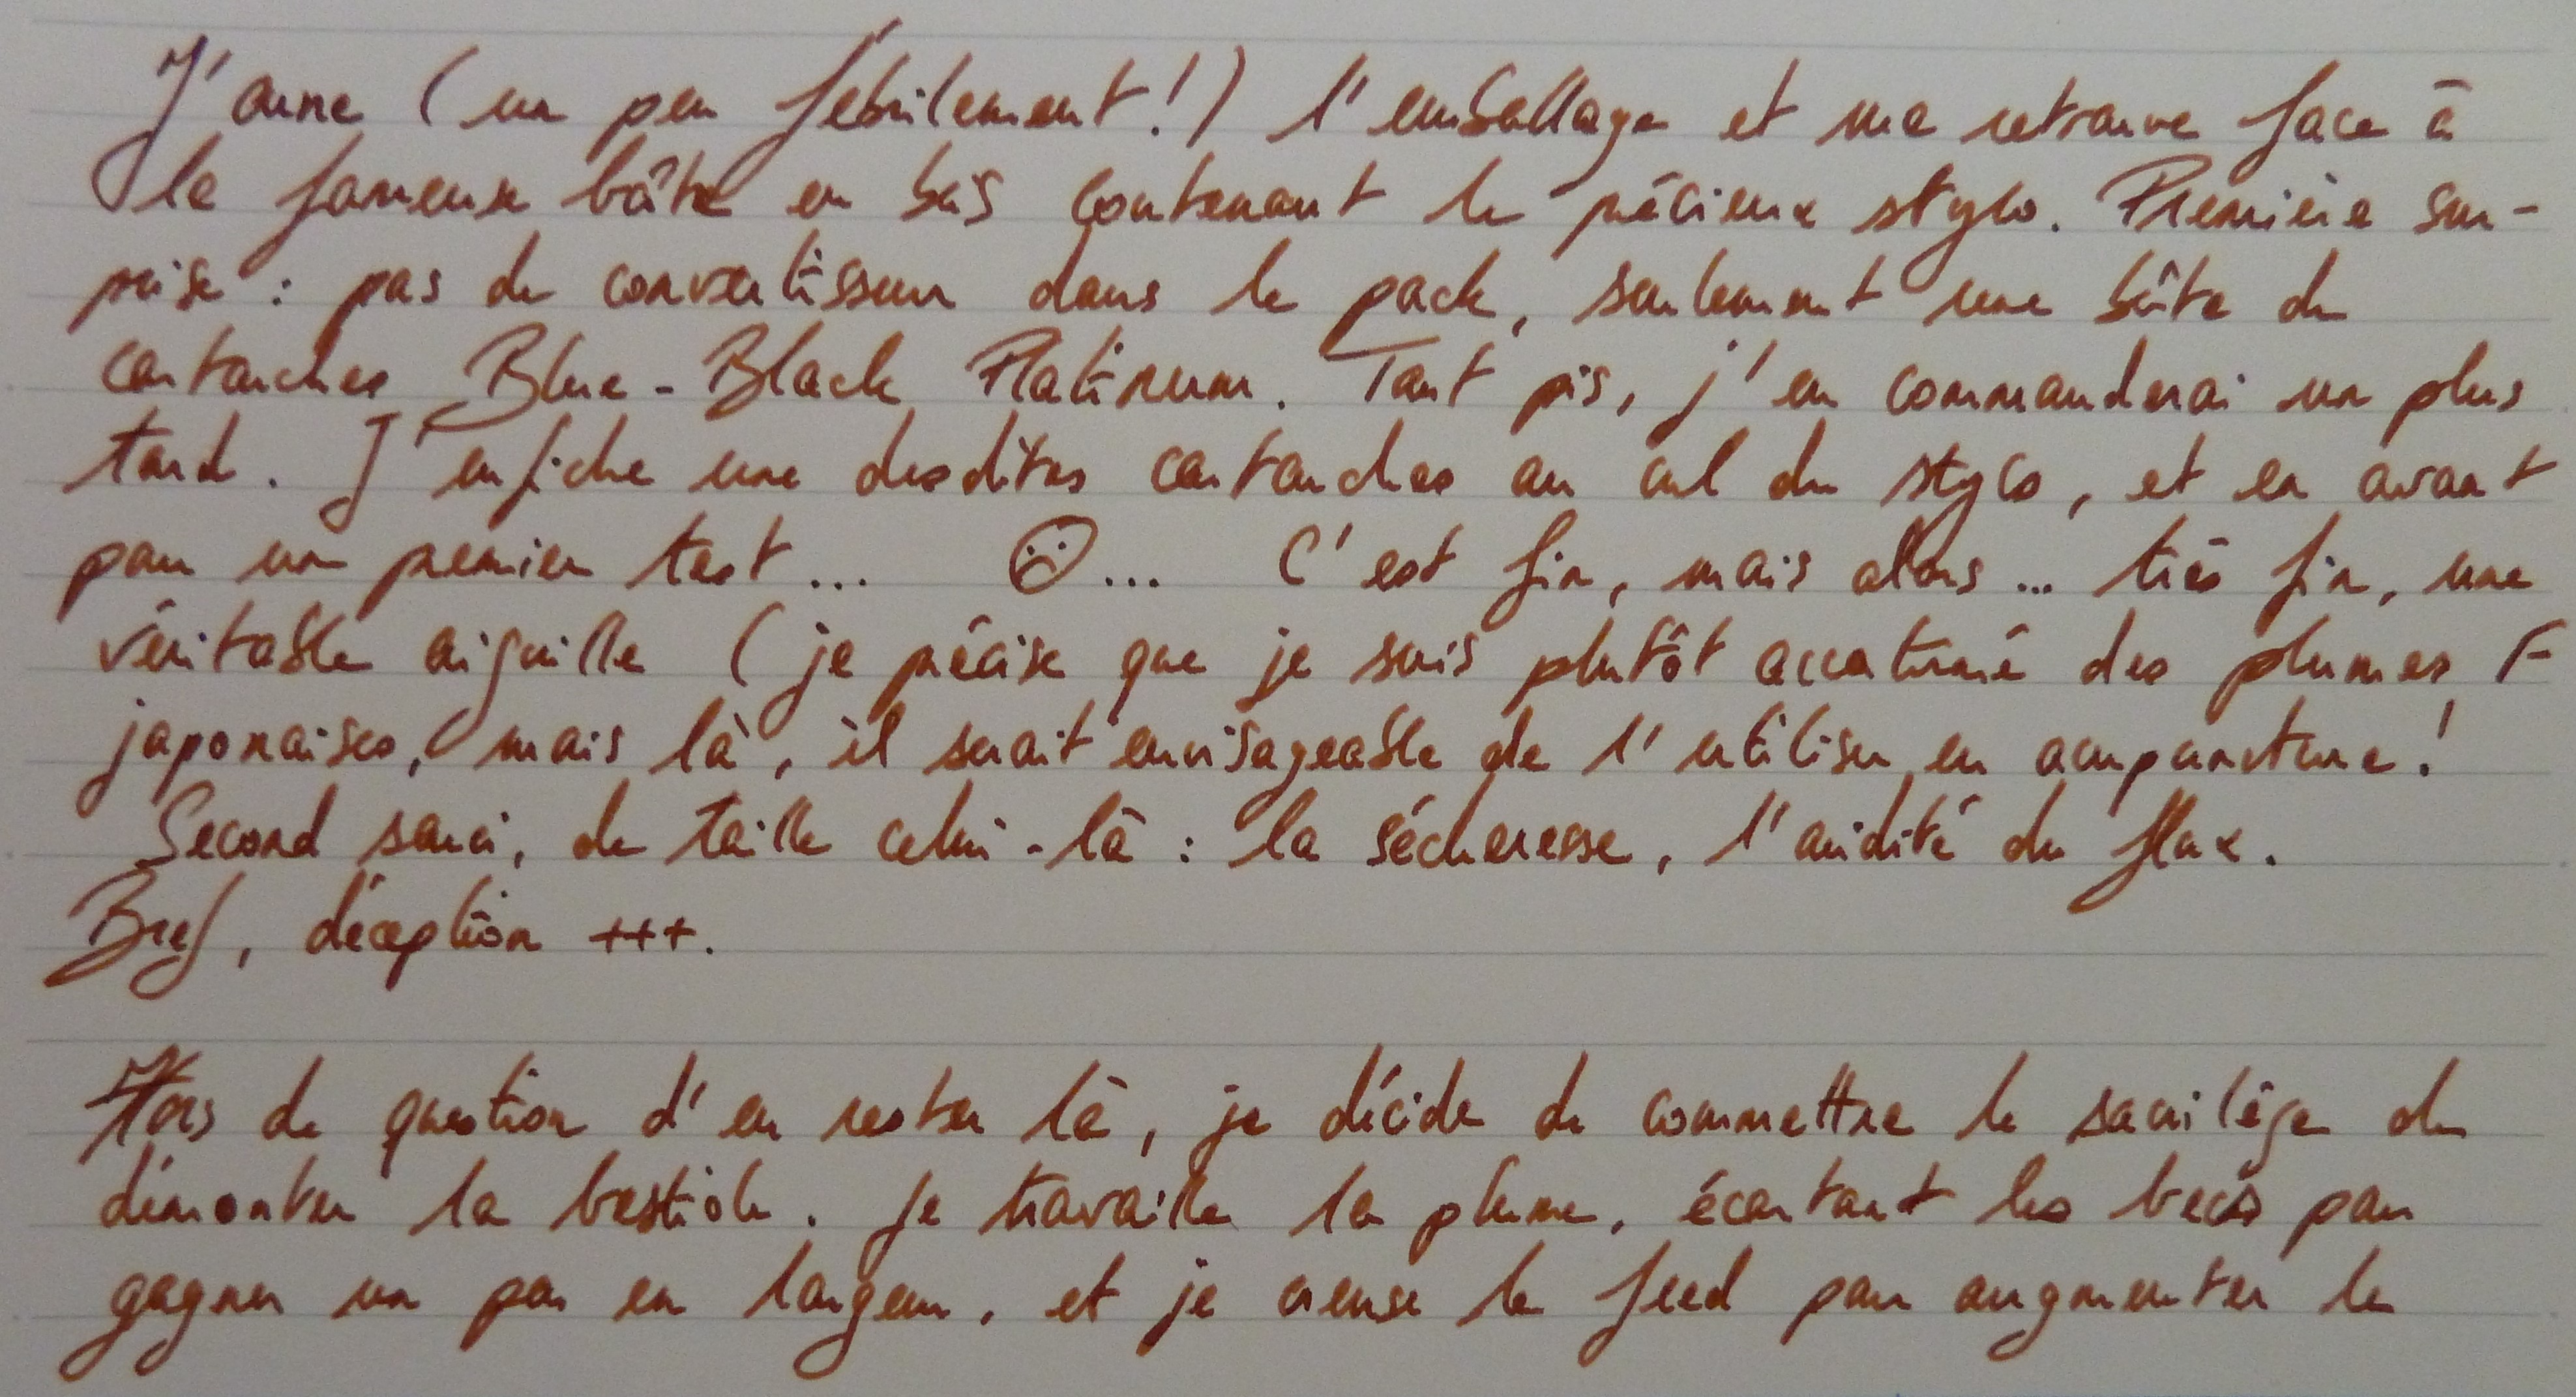 J'ouvre (un peu fébrilement!) l'emballage et me retrouve face à
la fameuse boîte en bois contenant le précieux stylo. Première sur-
prise : pas de convertisseur dans le pack, seulement une boîte de
cartouches Blue-Black Platinum. Tant pis, j'en commanderai un plus
tard. J'enfiche une desdites cartouches au cul du stylo, et en avant
pour un premier test... ☹... C'est fin, mais alors... très fin, une
véritable aiguille (je précise que je suis plutôt accoutumé des plumes F
japonaises, mais là, il serait envisageable de l'utiliser en acupuncture!
Second souci, de taille celui-là : la sécheresse, l'aridité du flux.
Bref, déception +++.
Hors de question d'en rester là, je décide de commettre le sacrilège de
démonter la bestiole. Je travaille la plume, écartant les becs pour
gagner un peu en largeur, et je creuse le feed pour augmenter le